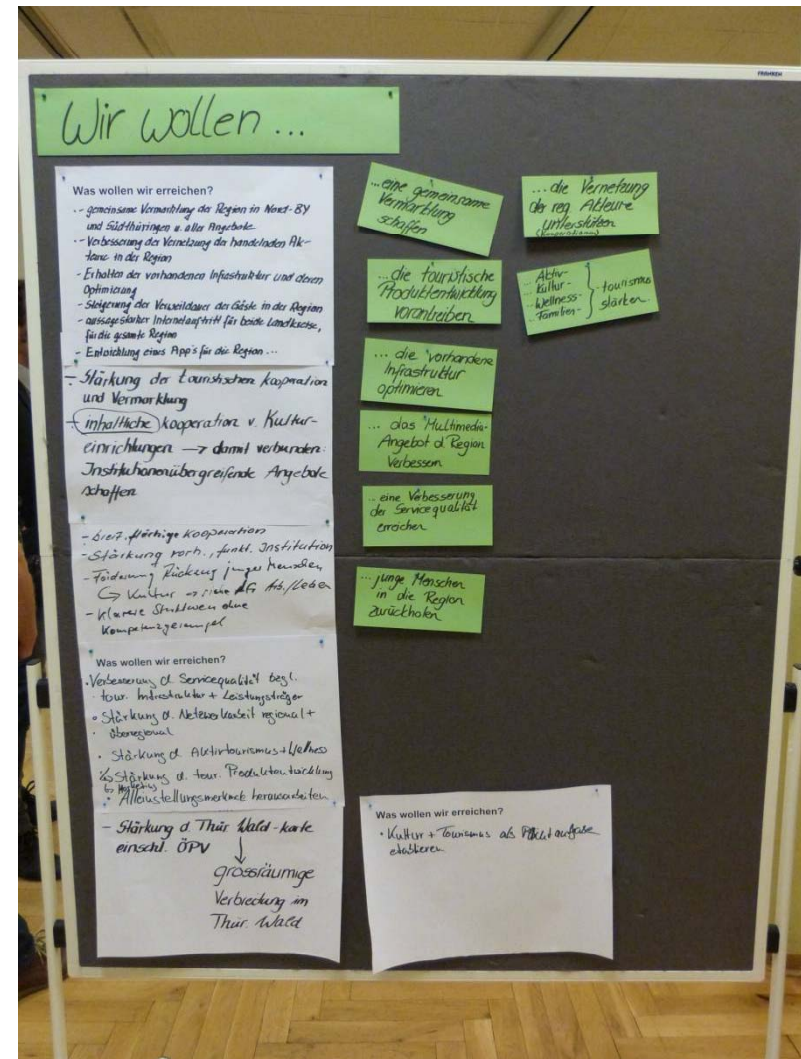 FRANKEN
Wir wollen...
Was wollen wir erreichen?
- gemeinsame Vermarktung der Region in Nord-BY
und Südthüringen u. aller Angebote
- Verbesserung der Vernetzung der handelnden Ak-
teure in der Region
- Erhalten der vorhandenen Infrastruktur und deren
Optimierung
- Steigerung der Verweildauer der Gäste in der Region
- aussagestarker Internetauftritt für beide Landkreise,
für die gesamte Region
- Entwicklung eines App's für die Region...
- Stärkung der touristischen Kooperation
und Vermarktung
- inhaltliche Kooperation v. Kultur-
einrichtungen → damit verbunden:
Institutionenübergreifende Angebote
schaffen
- breit flächige Kooperation
- Stärkung vorh., funkt. Institution
- Förderung Rückzug junger Menschen
↳ Kultur → Arb./Leben
- klarere Strukturen ohne
Kompetenzgerangel
Was wollen wir erreichen?
• Verbesserung d. Servicequalität bezl.
tour. Infrastruktur + Leistungsträger
• Stärkung d. Netzwerkarbeit regional +
überregional
• Stärkung d. Aktivtourismus + Wellness
↳ Stärkung d. tour. Produktentwicklung
↳ Marketing
• Alleinstellungsmerkmale herausarbeiten
- Stärkung d. Thür Wald-karte
einschl. ÖPV
↓
grossräumige
Verbreitung im
Thür. Wald
...eine gemeinsame
Vermarktung
schaffen
...die touristische
Produktentwicklung
vorantreiben
...die vorhandene
Infrastruktur
optimieren
...das Multimedia-
Angebot d. Region
verbessern
...eine Verbesserung
der Servicequalität
erreichen
...junge Menschen
in die Region
zurückholen
...die Vernetzung
der reg. Akteure
unterstützen
(Kooperationen)
...Aktiv-
...Kultur-
...Wellness-
...Familien-
} -tourismus
stärken
Was wollen wir erreichen?
• Kultur + Tourismus als Pflichtaufgabe
etablieren